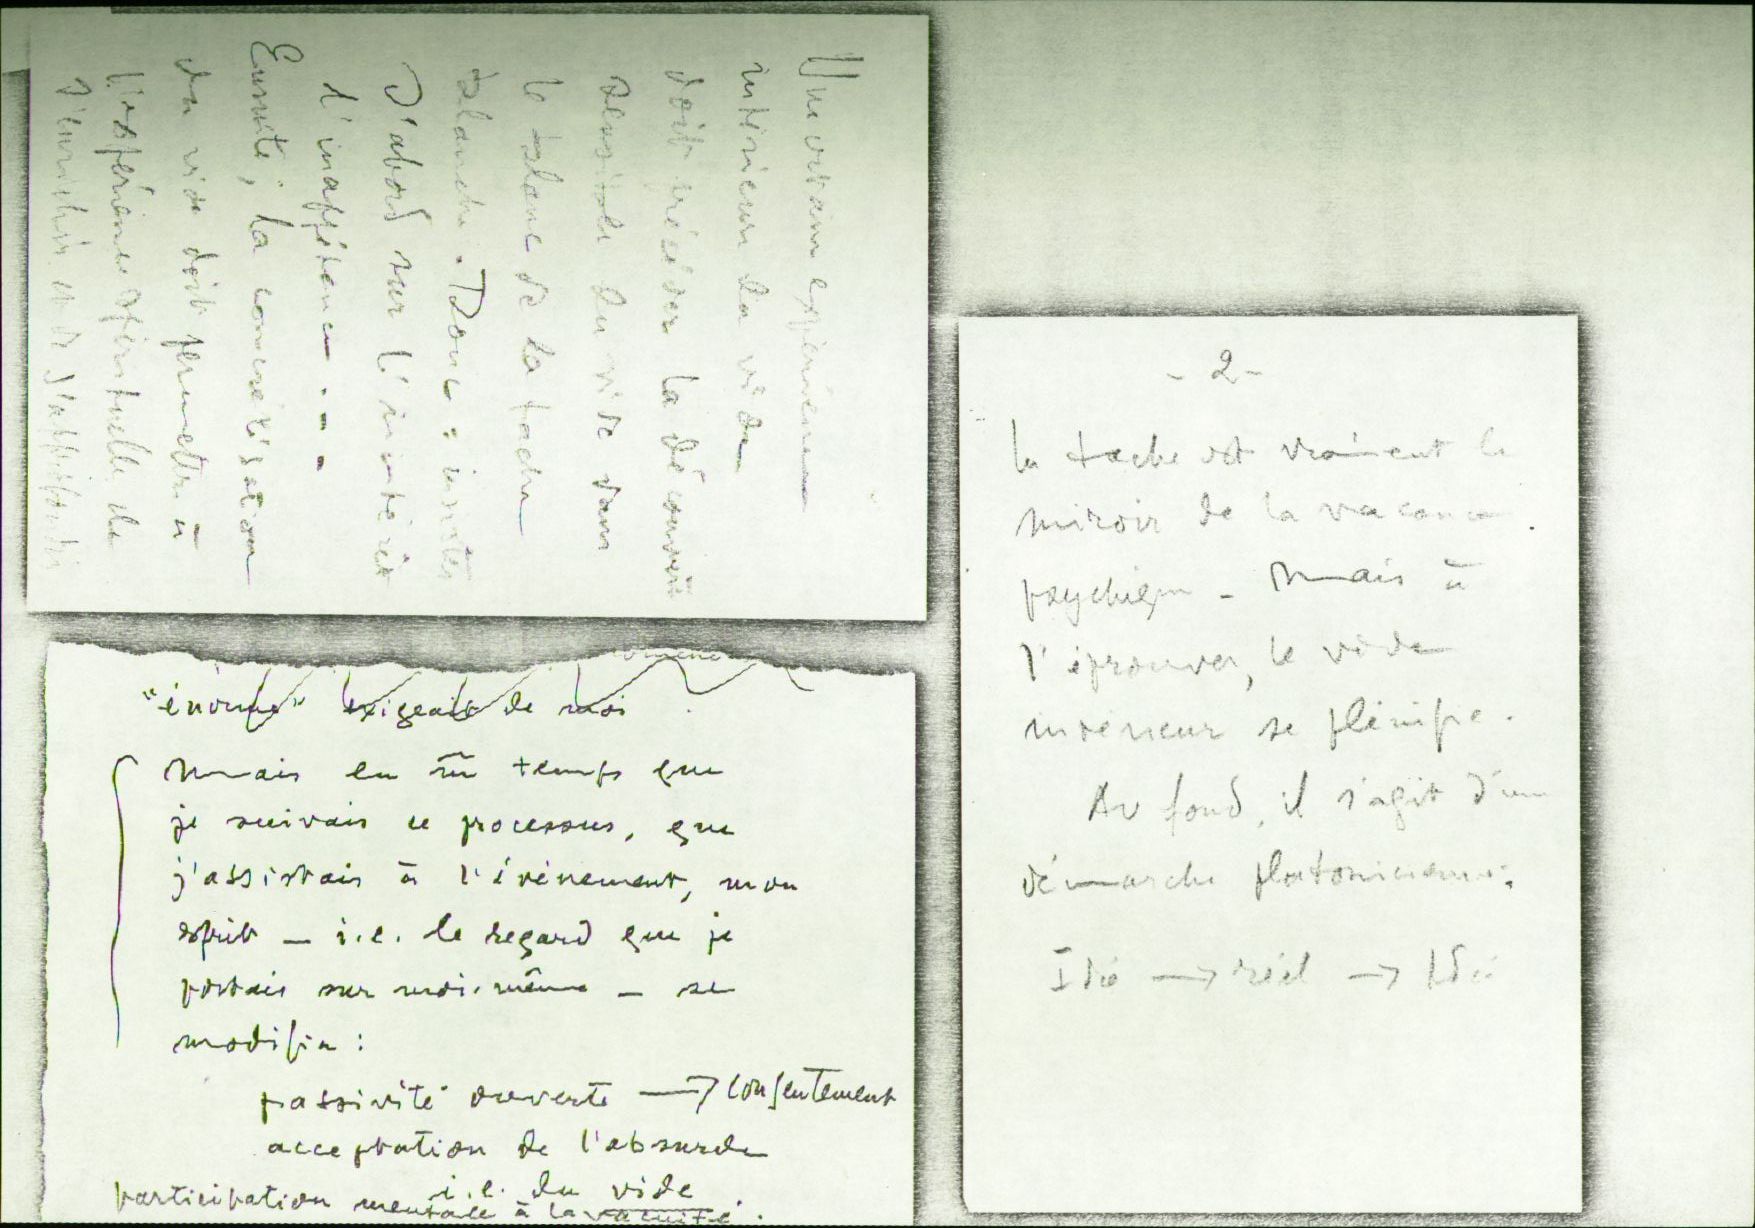 Une certaine expérience
intérieure du vide
doit précéder la découverte
sensible du vide dans
le blanc de la tache
blanche. Donc : insister
d'abord sur l'inintérêt
l'inappétence...
Ensuite, la concrétisation
du vide doit permettre à
l'expérience spirituelle de
s'enrichir et de s'approfondir
"énorme" exigeait de moi
mais en m̄ temps que
je suivais ce processus, que
j'assistais à l'événement, mon
esprit – i.e. le regard que je
portais sur moi-même – se
modifia :
passivité ouverte → consentement
acceptation de l'absurde
i.e. du vide
participation mentale à la vacuité.
- 2 -
la tache est vraiment le
miroir de la vacance
psychique – Mais à
l'éprouver, le vide
intérieur se plénifie.
Au fond, il s'agit d'une
démarche platonicienne :
Idée → réel → Idée